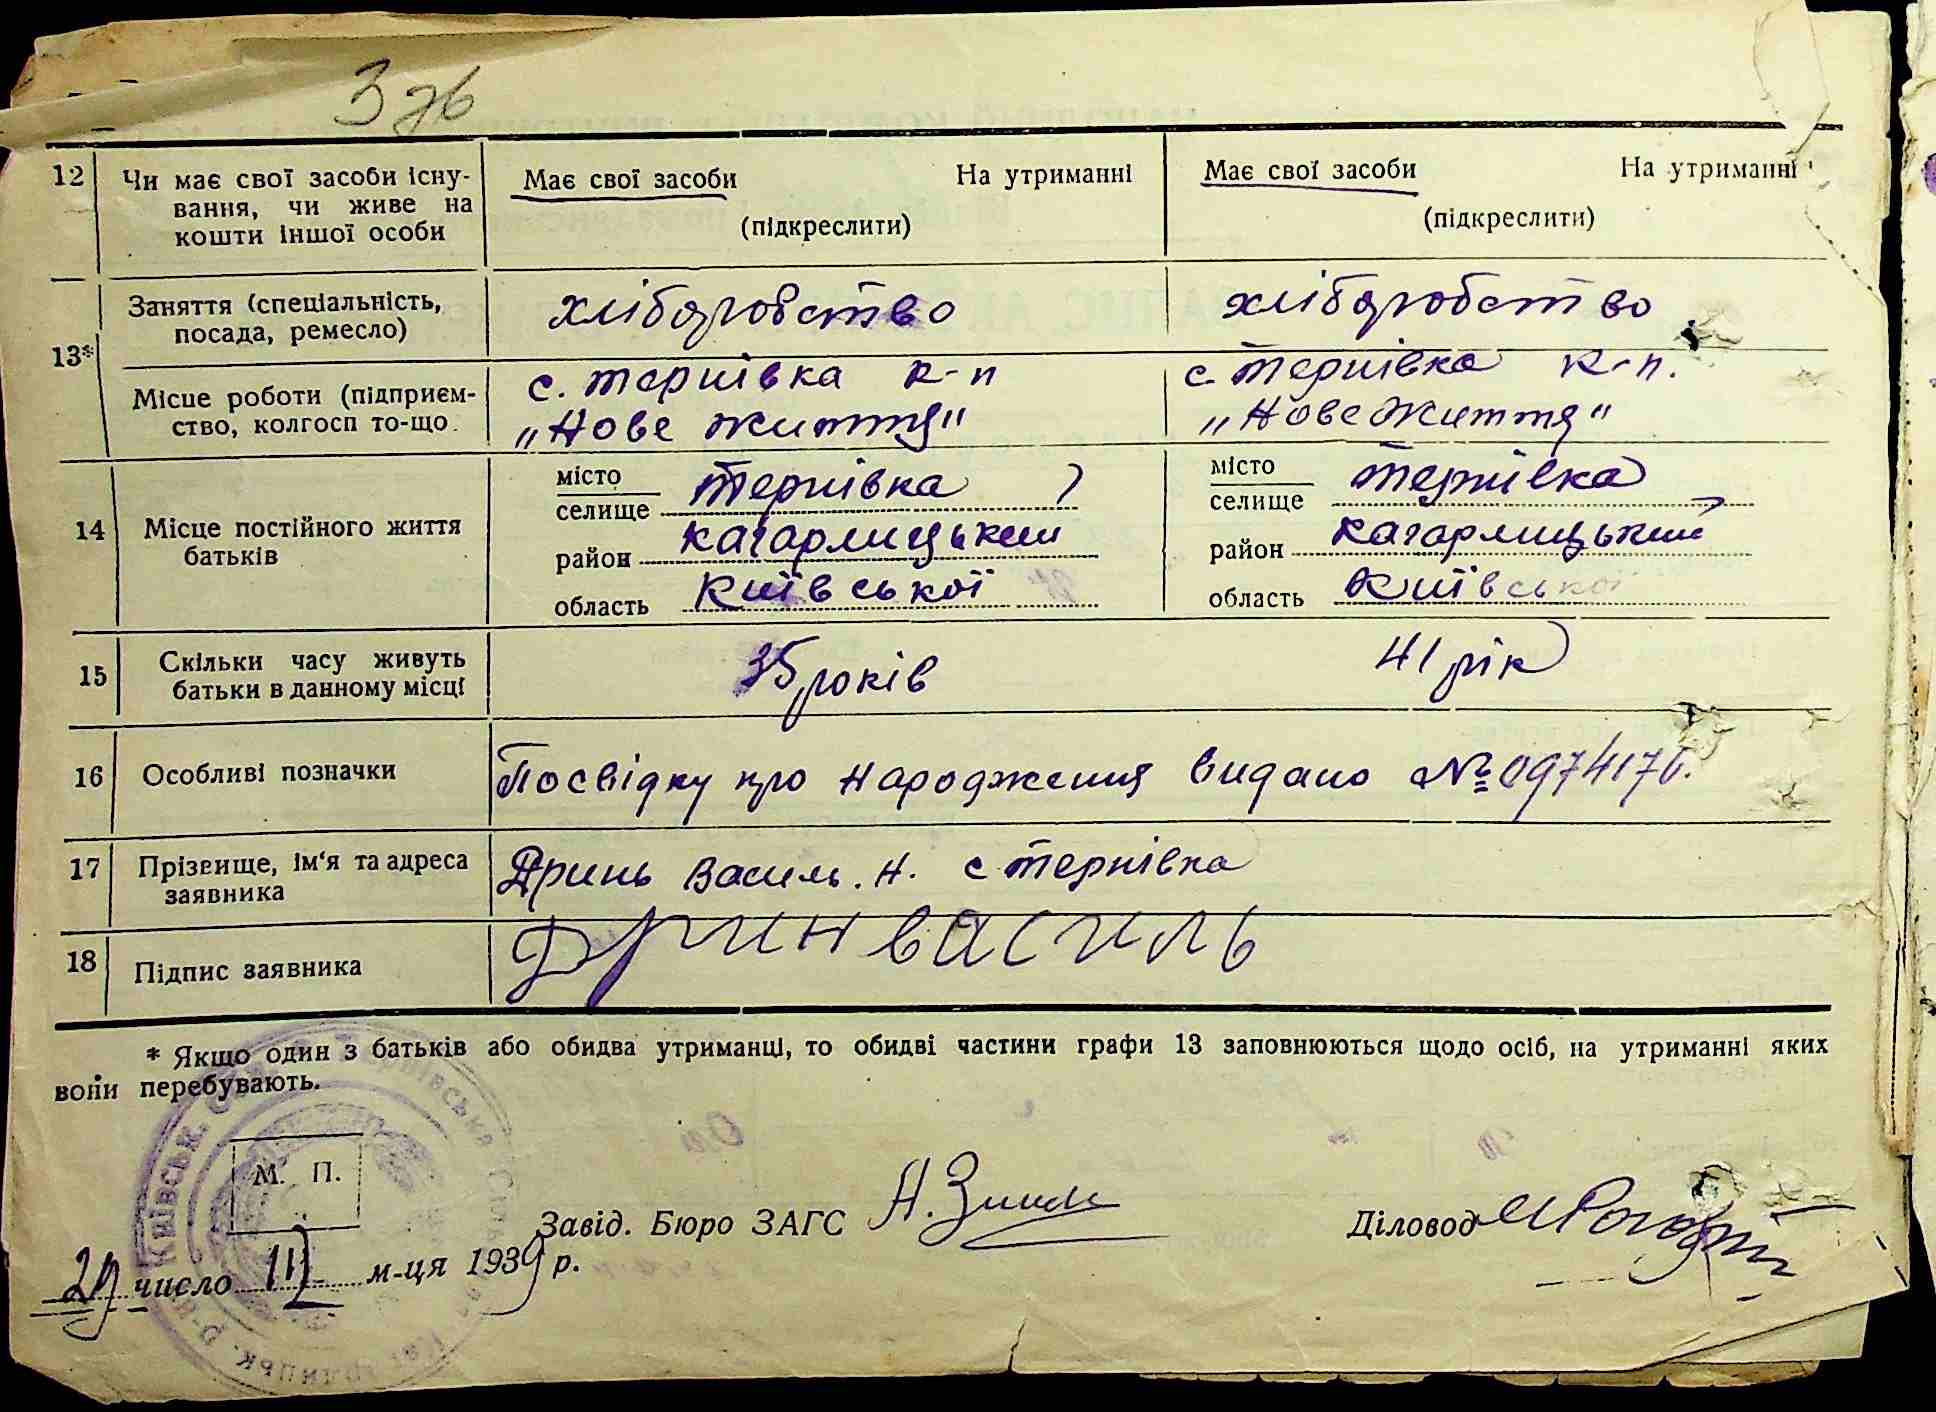 3 зв
12 Чи має свої засоби існу- Має свої засоби На утриманні Має свої засоби На утриманні
вання, чи живе на
кошти іншої особи (підкреслити) (підкреслити)
13* Заняття (спеціальність, хліборобство хліборобство
посада, ремесло)
Місце роботи (підприєм- с. Тернівка к-п с. Тернівка к-п.
ство, колгосп то-що. „Нове життя" „Нове життя"
14 Місце постійного життя місто Тернівка місто Тернівка
батьків селище селище
район Кагарлицький район Кагарлицький
область Київської область Київської
15 Скільки часу живуть 35 років 41 рік
батьки в данному місці
16 Особливі позначки Посвідку про народження видано №
17 Прізвище, ім'я та адреса Дринь Василь. Н. с Тернівка
заявника
18 Підпис заявника Дрин василь
* Якщо один з батьків або обидва утриманці, то обидві частини графи 13 заповнюються щодо осіб, на утриманні яких
вони перебувають.
М. П.
Завід. Бюро ЗАГС Діловод
29 число III м-ця 1939 р.